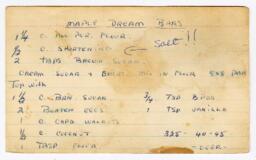 MAPLE DREAM BARS
1 1/4 C. ALL PUR. FLOUR
1/2 C. SHORTENING ← Salt!!
2 TBPS BROWN SUGAR
CREAM SUGAR & SHORT. MIX IN FLOUR 8x8 PAN
Top with
1 1/2 C. BRN SUGAR 3/4 TSP B. PDR.
2 BEATEN EGGS 1 TSP VANILLA
1 C. CAPO WALNUTS
1/2 C. COCONUT 325 - 40-45
1 TBSP FLOUR